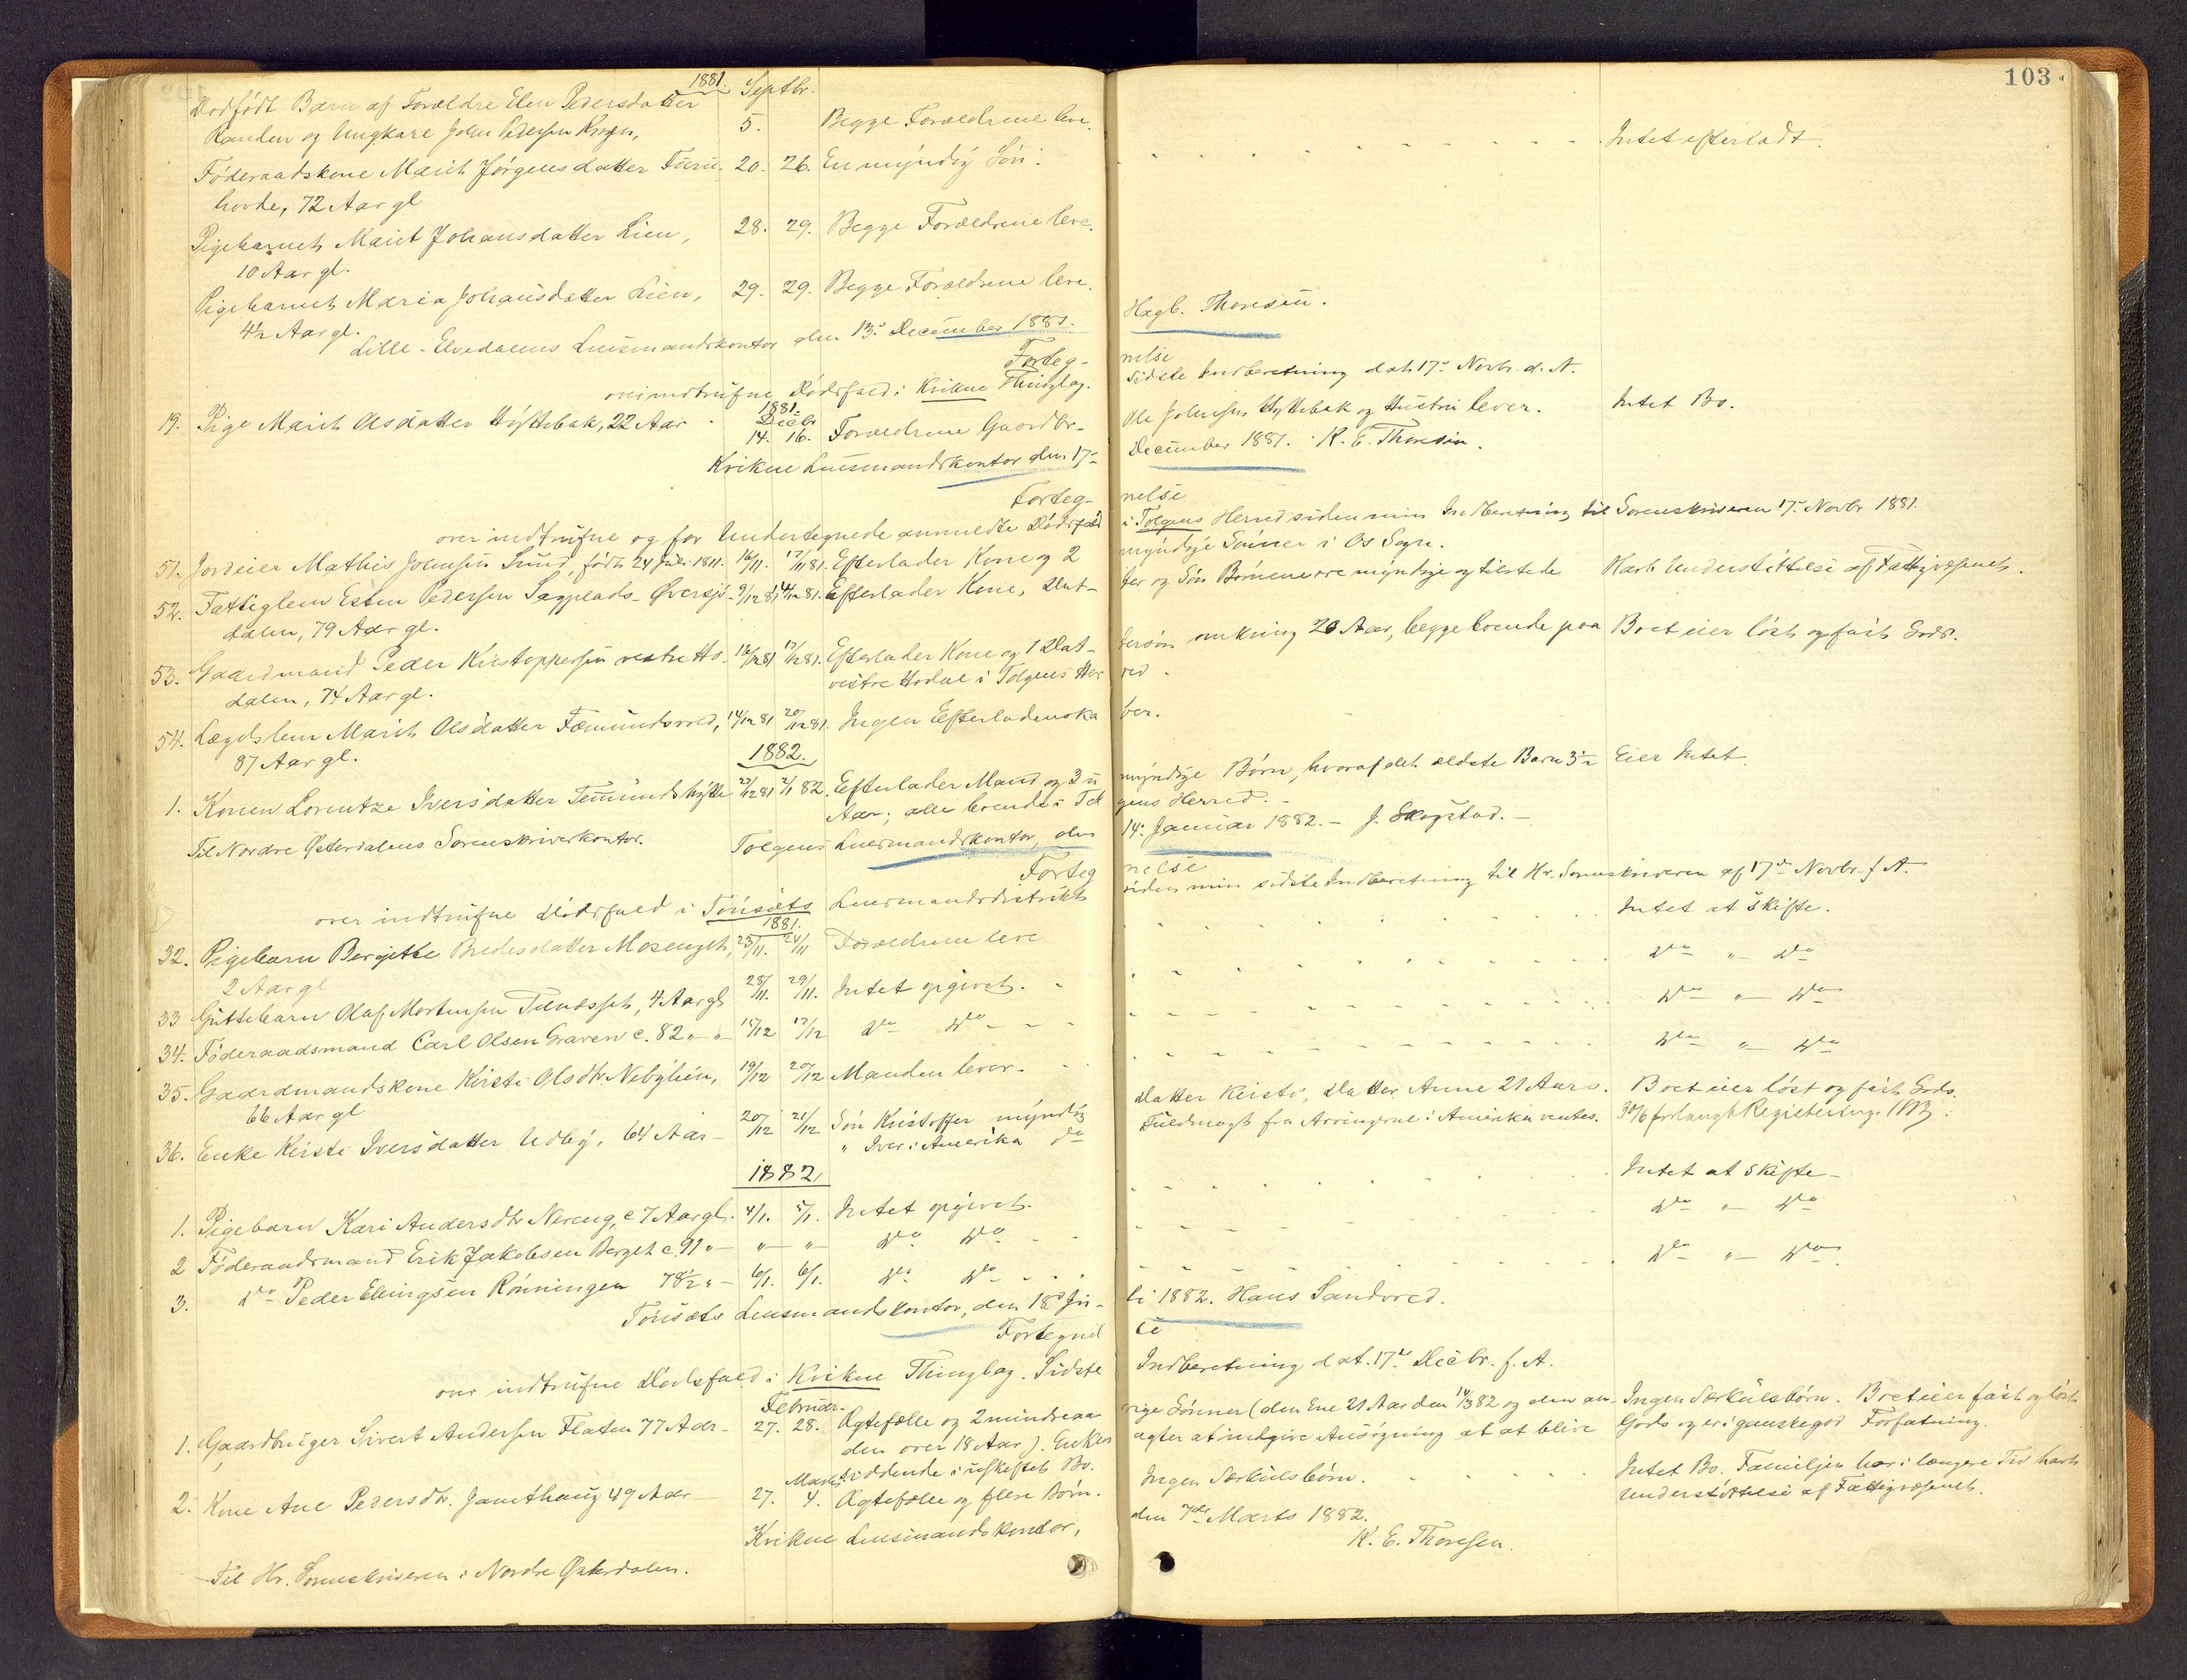 103.
1881. Septbr.
Dødfødt Barn af Forældre Elen Pedersdatter
Randen og Ungkarl John Pedersen 5. Begge Forældrene leve. Intet efterladt.
Föderaadskone Marit Jørgensdatter Furu- 20. 26. En myndig Sön.
hovde, 72 Aar gl
Pigebarnet Marit Johansdatter Lien, 28. 29. Begge Forældrene leve.
10 Aar gl.
Pigebarnet Maria Johansdatter Lien, 29. 29. Begge Forældrene leve.
4½ Aar gl.
Lille-Elvedalens Lensmandskontor den 13. December 1881. Hagb. Thoresen.
Forteg-nelse
over indtrufne Dødsfald i Kvikne Thinglag. Sidste Indberetning dat. 17. Novbr. d. A.
1881. Decbr
19. Pige Marit Olsdatter Hyttebak, 22 Aar 14. 16. Forældrene Gaardbr. Ole Johnsen Hyttebak og Hustru lever. Intet Bo.
Kvikne Lensmandskontor den 17. December 1881. K. E. Thoresen.
Forteg-nelse
over indtrufne og for Undertegnede anmeldte Dödsfald i Tolgens Herred siden min Indberetning til Sorenskriveren 17. Novbr 1881.
51. Jordeier Mathis Johnsen Sund, födt 24 Juli 1811. 16/11. 17/11 81. Efterlader Kone og 2 myndige Sönner i Os Sogn.
52. Fattiglem Esten Pedersen Sagplads-Øversjö- 9/12 81 14/12 81. Efterlader Kone, Dat-ter og Sön. Börnene ere myndige og tilstede Havt Understöttelse af Fattigvæsenet.
dalen, 79 Aar gl.
53. Gaardmand Peder Kristoppersen vestre Ho- 16/12 81 17/12 81. Efterlader Kone og 1 Dat-tersön omkring 20 Aar, begge boende paa Boet eier löst og fast Gods.
dalen, 74 Aar gl. vestre Hodal i Tolgens Her-red.
54. Lægdslem Marit Olsdatter Fæmundsvold, 14/12 81 20/12 81. Ingen Efterladenska-ber.
87 Aar gl.
1882.
1. Konen Lorentze Iversdatter Femundshytte 27/12 81 2/1 82. Efterlader Mand og 3 u-myndige Börn, hvoraf det ældste Barn 3½ Eier Intet.
Aar; alle boende i Tol-gens Herred.
Til Nordre Østerdalens Sorenskriverkontor. Tolgens Lensmandskontor, den 14. Januar 1882. J. Skogstad.
Forteg-nelse
over indtrufne Dödsfald i Tönsets Lensmandsdistrikt siden min sidste Indberetning til Hr. Sorenskriveren af 17de Novbr. f. A.
1881.
32. Pigebarn Bergitte Bredesdatter Mosenget, 23/11. 24/11 Forældrene leve Intet at skifte.
2 Aar gl
33 Guttebarn Olaf Mortensen Tundsset, 4 Aar gl 28/11. 29/11. Intet opgivet. Do " Do
34. Föderaadsmand Carl Olsen Graven c. 82 " " 15/12 17/12 do do Do " Do
35. Gaardmandskone Kirsti Olsdtr. Nebylien, 19/12 20/12 Manden lever. Do " Do
66 Aar gl
36. Enke Kirsti Iversdatter Udby, 64 Aar 20/12 21/12 Sön Kristoffer myndig Datter Kirsti, Datter Anne 21 Aars. Boet eier löst og fast Gods.
" Iver i Amerika do Fuldmagt fra Arvingerne i Amerika ventes. forlangt Registrering.
1882.
1. Pigebarn Kari Andersdtr Nereng, c 7 Aar gl. 4/1. 5/1. Intet opgivet. Intet at skifte
2 Föderaadsmand Erik Jakobsen Berget c. 91 " " " Do Do Do " Do
3. Do Peder Ellingsen Rönningen 78½ " 6/1. 6/1. Do Do Do " Do
Tönsets Lensmandskontor, den 18de Ju-li 1882. Hans Sandvold.
Fortegnel-se
over indtrufne Dödsfald i Kvikne Thinglag. Sidste Indberetning dat. 17de Decbr. f. A.
Februar.
1. Gaardbruger Sivert Andersen Flaten 77 Aar 27. 28. Ægtefælle og 2 mindreaa-rige Sönner (den Ene 21 Aar den 14/3 82 og den an- Ingen Særkulsbörn. Boet eier fast og löst
den over 18 Aar). Enken agter at indgive Ansögning at at blive Gods og er i ganske god Forfatning.
siddende i uskiftet Bo.
Marts
2. Kone Ane Pedersdtr. Jamthaug 49 Aar 27. 4. Ægtefælle og flere Börn. Ingen Særkulsbörn. Intet Bo. Familjen har i længere Tid havt
Understöttelse af Fattigvæsenet.
Kvikne Lensmandskontor, den 7de Marts 1882.
K. E. Thoresen.
Til Hr. Sorenskriveren i Nordre Østerdalen.